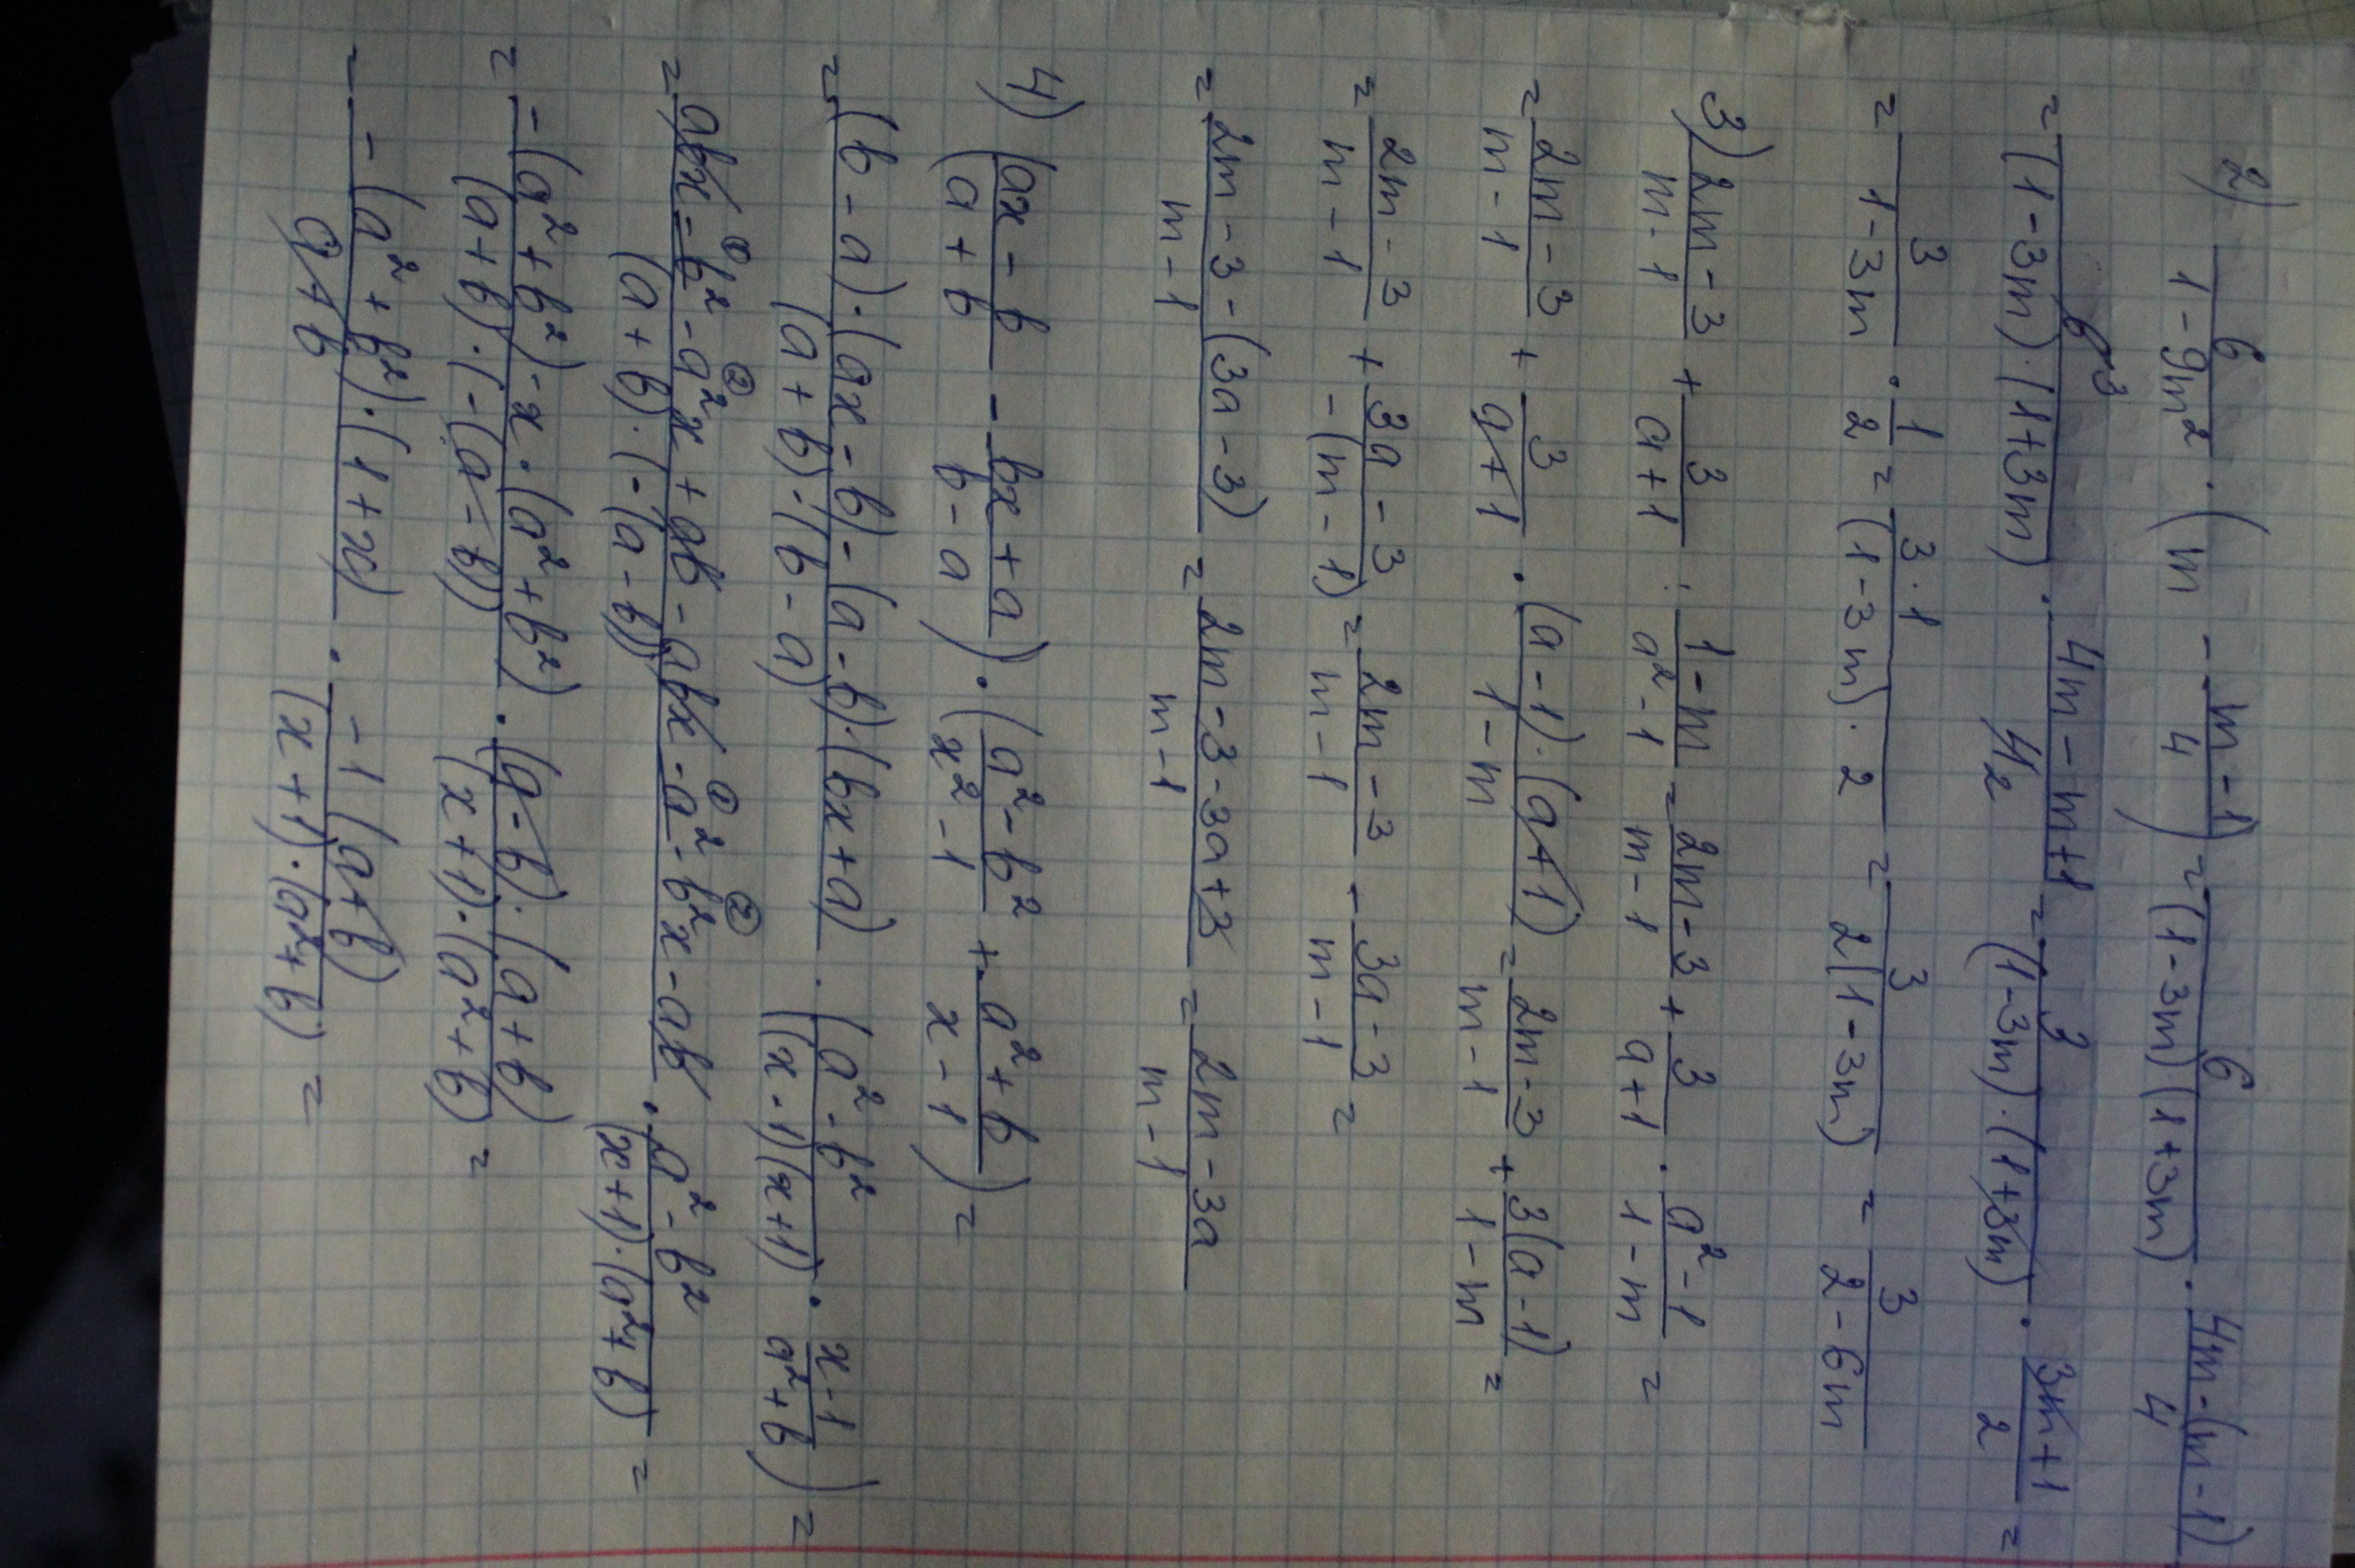 2) 6/(1-9m²) · (m - (m-1)/4) = 6/((1-3m)(1+3m)) · (4m-(m-1))/4
= 6 3/((1-3m)·(1+3m)) · (4m-m+1)/(4 2) = 3/((1-3m)·(1+3m)) · (3m+1)/2 =
= 3/(1-3m) · 1/2 = (3·1)/((1-3m)·2) = 3/(2(1-3m)) = 3/(2-6m)
3) (2m-3)/(m-1) + 3/(a+1) : (1-m)/(a²-1) = (2m-3)/(m-1) + 3/(a+1) · (a²-1)/(1-m) =
= (2m-3)/(m-1) + 3/(a+1) · ((a-1)·(a+1))/(1-m) = (2m-3)/(m-1) + (3(a-1))/(1-m) =
= (2m-3)/(m-1) + (3a-3)/(-(m-1)) = (2m-3)/(m-1) - (3a-3)/(m-1) =
= (2m-3-(3a-3))/(m-1) = (2m-3-3a+3)/(m-1) = (2m-3a)/(m-1)
4) ((ax-b)/(a+b) - (bx+a)/(b-a)) · ((a²-b²)/(x²-1) + (a²+b)/(x-1)) =
= ((b-a)·(ax-b)-(a-b)·(bx+a))/((a+b)·(b-a)) · ((a²-b²)/((x-1)(x+1)) · (x-1)/(a²+b)) =
= (abx-b²-a²x+ab-abx-a²-b²x-ab)/((a+b)·(-(a-b))) · (a²-b²)/((x+1)·(a²+b)) =
= (-(a²+b²)-x·(a²+b²))/((a+b)·(-(a-b))) · ((a-b)·(a+b))/((x+1)·(a²+b)) =
= (-(a²+b²)·(1+x))/(a+b) · (-1(a+b))/((x+1)·(a²+b)) =